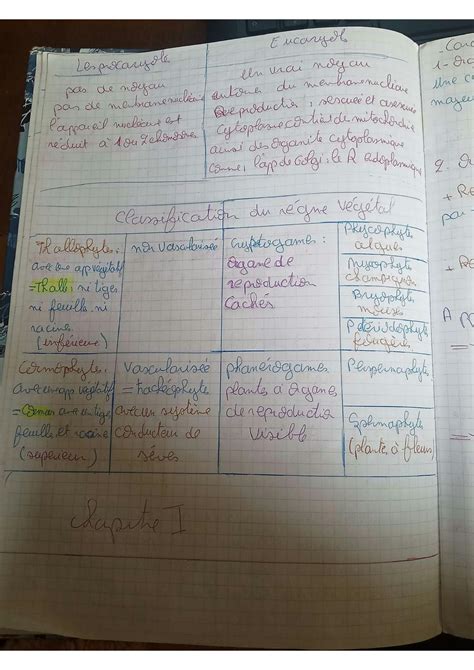 Les procaryote
pas de noyau
pas de membrane nucléaire
l'appareil nucléaire est
réduit à 1 ou 2 chromosomes
Eucaryote
Un vrai noyau
entourée du membrane nucléaire
reproduction, sexuée et asexuée
cytoplasme contient de mitochondrie
aussi des organite cytoplasmique
comme, l'app de Golgi, le R endoplasmique
Classification du règne végétal
Thallophytes:
avec une app végétatif
= Thalle: ni tiges
ni feuille ni
racine
(inférieure)
non vascularisée
Cryptogames:
organe de
reproduction
cachés
Phycophytes
algues
Mycophytes
champignon
Bryophytes
mousses
Ptéridophytes
fougères
Cormophytes:
avec un app végétatif
= Cormus avec tige
feuilles et racine
(supérieur)
Vascularisée
= trachéophyte
avec un système
conducteur de
sèves
phanérogames
plantes à organes
de reproduction
visible
(plante à fleurs)
chapitre I
1-
2.